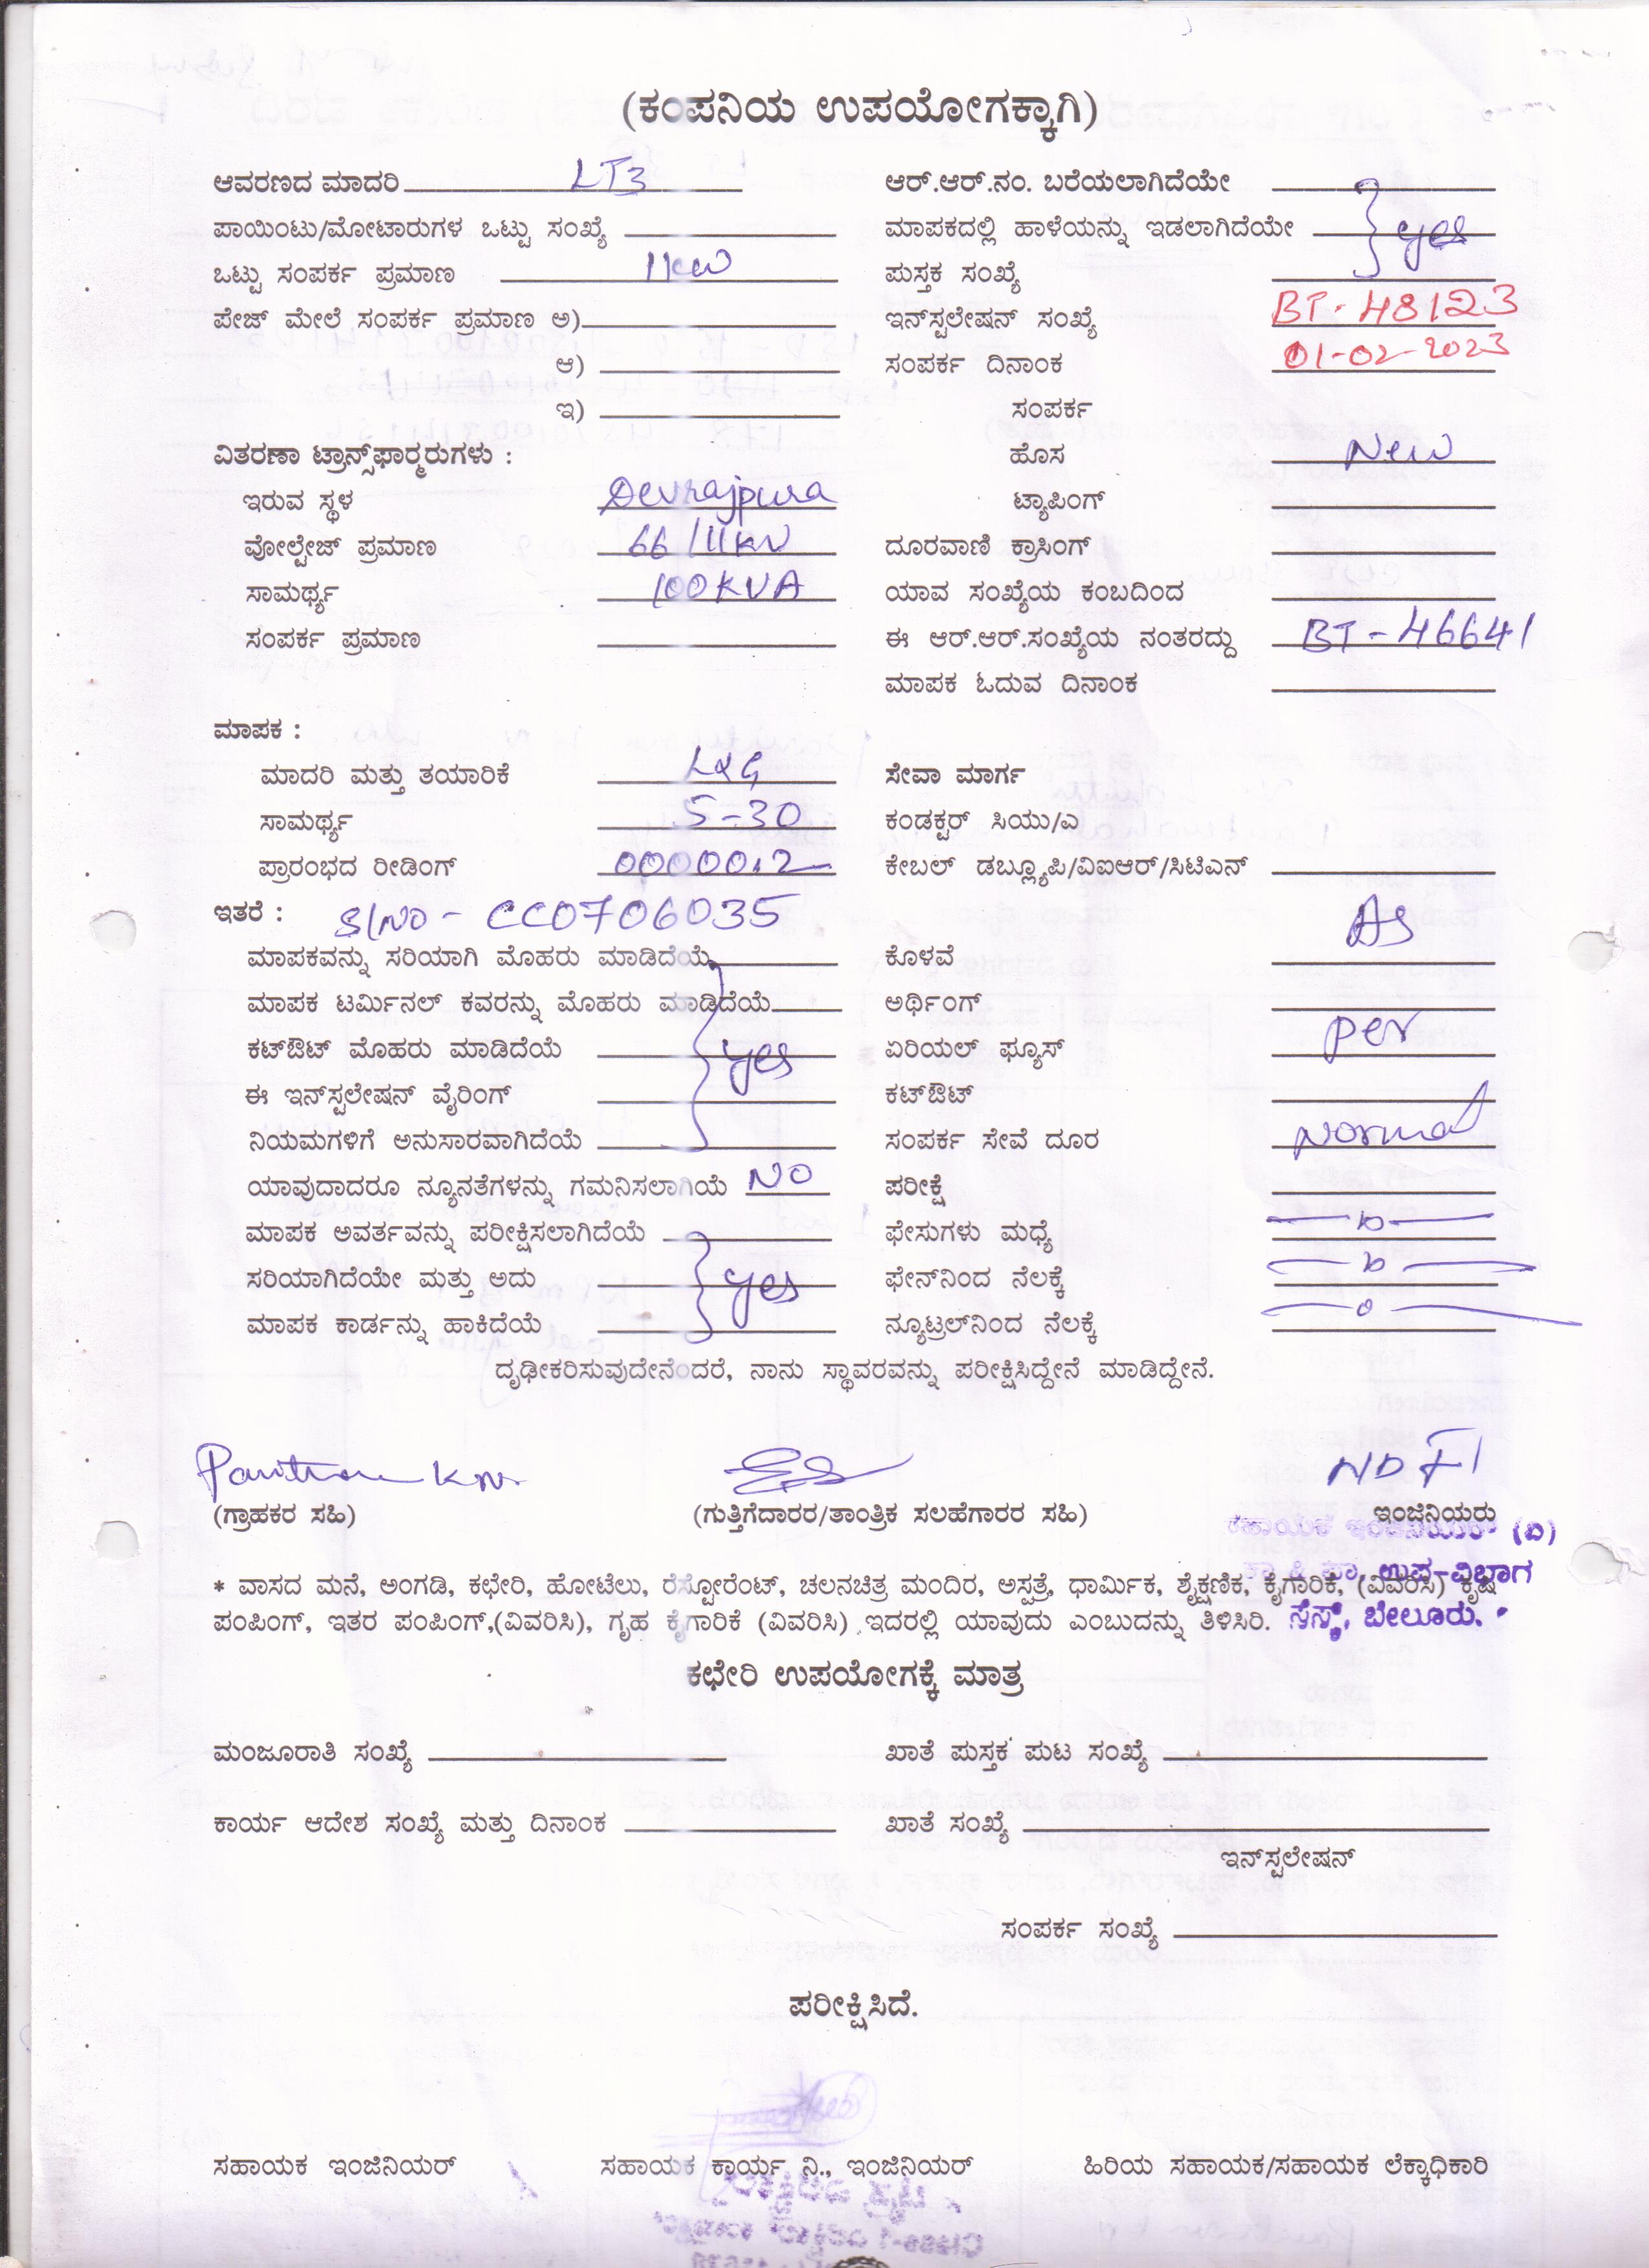 (ಕಂಪನಿಯ ಉಪಯೋಗಕ್ಕಾಗಿ)
ಆವರಣದ ಮಾದರಿ LT3 ಆರ್.ಆರ್.ನಂ. ಬರೆಯಲಾಗಿದೆಯೇ
ಪಾಯಿಂಟು/ಮೋಟಾರುಗಳ ಒಟ್ಟು ಸಂಖ್ಯೆ ಮಾಪಕದಲ್ಲಿ ಹಾಳೆಯನ್ನು ಇಡಲಾಗಿದೆಯೇ yes
ಒಟ್ಟು ಸಂಪರ್ಕ ಪ್ರಮಾಣ 1kw ಪುಸ್ತಕ ಸಂಖ್ಯೆ
ಪೇಜ್ ಮೇಲೆ ಸಂಪರ್ಕ ಪ್ರಮಾಣ ಅ) ಇನ್‌ಸ್ಟಲೇಷನ್ ಸಂಖ್ಯೆ BT-48123
ಆ) ಸಂಪರ್ಕ ದಿನಾಂಕ 01-02-2023
ಇ) ಸಂಪರ್ಕ
ವಿತರಣಾ ಟ್ರಾನ್ಸ್‌ಫಾರ್‍ಮರುಗಳು : ಹೊಸ New
ಇರುವ ಸ್ಥಳ Devrajpura ಟ್ಯಾಪಿಂಗ್
ವೋಲ್ಟೇಜ್ ಪ್ರಮಾಣ 66/11kv ದೂರವಾಣಿ ಕ್ರಾಸಿಂಗ್
ಸಾಮರ್ಥ್ಯ 100KVA ಯಾವ ಸಂಖ್ಯೆಯ ಕಂಬದಿಂದ
ಸಂಪರ್ಕ ಪ್ರಮಾಣ ಈ ಆರ್.ಆರ್.ಸಂಖ್ಯೆಯ ನಂತರದ್ದು BT-46641
ಮಾಪಕ ಓದುವ ದಿನಾಂಕ
ಮಾಪಕ :
ಮಾದರಿ ಮತ್ತು ತಯಾರಿಕೆ L&G ಸೇವಾ ಮಾರ್ಗ
ಸಾಮರ್ಥ್ಯ 5-30 ಕಂಡಕ್ಟರ್ ಸಿಯು/ಎ
ಪ್ರಾರಂಭದ ರೀಡಿಂಗ್ 000000.2 ಕೇಬಲ್ ಡಬ್ಲ್ಯೂಪಿ/ವಿಐಆರ್/ಸಿಟಿಎನ್
ಇತರೆ : S/NO - CC0706035 As
ಮಾಪಕವನ್ನು ಸರಿಯಾಗಿ ಮೊಹರು ಮಾಡಿದೆಯೆ ಕೊಳವೆ
ಮಾಪಕ ಟರ್ಮಿನಲ್ ಕವರನ್ನು ಮೊಹರು ಮಾಡಿದೆಯೆ ಅರ್ಥಿಂಗ್
ಕಟ್‌ಔಟ್ ಮೊಹರು ಮಾಡಿದೆಯೆ yes ಏರಿಯಲ್ ಫ್ಯೂಸ್ per
ಈ ಇನ್‌ಸ್ಟಲೇಷನ್ ವೈರಿಂಗ್ ಕಟ್‌ಔಟ್
ನಿಯಮಗಳಿಗೆ ಅನುಸಾರವಾಗಿದೆಯೆ ಸಂಪರ್ಕ ಸೇವೆ ದೂರ Normal
ಯಾವುದಾದರೂ ನ್ಯೂನತೆಗಳನ್ನು ಗಮನಿಸಲಾಗಿಯೆ NO ಪರೀಕ್ಷೆ
ಮಾಪಕ ಅವರ್ತವನ್ನು ಪರೀಕ್ಷಿಸಲಾಗಿದೆಯೆ ಫೇಸುಗಳು ಮಧ್ಯೆ
ಸರಿಯಾಗಿದೆಯೇ ಮತ್ತು ಅದು yes ಫೇನ್‌ನಿಂದ ನೆಲಕ್ಕೆ
ಮಾಪಕ ಕಾರ್ಡನ್ನು ಹಾಕಿದೆಯೆ ನ್ಯೂಟ್ರಲ್‌ನಿಂದ ನೆಲಕ್ಕೆ
ದೃಢೀಕರಿಸುವುದೇನೆಂದರೆ, ನಾನು ಸ್ಥಾವರವನ್ನು ಪರೀಕ್ಷಿಸಿದ್ದೇನೆ ಮಾಡಿದ್ದೇನೆ.
(ಗ್ರಾಹಕರ ಸಹಿ) (ಗುತ್ತಿಗೆದಾರರ/ತಾಂತ್ರಿಕ ಸಲಹೆಗಾರರ ಸಹಿ) ಇಂಜಿನಿಯರು
ಸಹಾಯಕ ಇಂಜಿನಿಯರ್ (ವಿ)
ಉಪ-ವಿಭಾಗ
* ವಾಸದ ಮನೆ, ಅಂಗಡಿ, ಕಛೇರಿ, ಹೋಟೆಲು, ರೆಸ್ಟೋರೆಂಟ್, ಚಲನಚಿತ್ರ ಮಂದಿರ, ಅಸ್ಪತ್ರೆ, ಧಾರ್ಮಿಕ, ಶೈಕ್ಷಣಿಕ, ಕೈಗಾರಿಕೆ, (ವಿವರಿಸಿ) ಕೃಷಿ
ಪಂಪಿಂಗ್, ಇತರ ಪಂಪಿಂಗ್,(ವಿವರಿಸಿ), ಗೃಹ ಕೈಗಾರಿಕೆ (ವಿವರಿಸಿ) ಇದರಲ್ಲಿ ಯಾವುದು ಎಂಬುದನ್ನು ತಿಳಿಸಿರಿ. ಸೆಸ್ಕ್, ಬೇಲೂರು.
ಕಛೇರಿ ಉಪಯೋಗಕ್ಕೆ ಮಾತ್ರ
ಮಂಜೂರಾತಿ ಸಂಖ್ಯೆ ಖಾತೆ ಪುಸ್ತಕ ಪುಟ ಸಂಖ್ಯೆ
ಕಾರ್ಯ ಆದೇಶ ಸಂಖ್ಯೆ ಮತ್ತು ದಿನಾಂಕ ಖಾತೆ ಸಂಖ್ಯೆ
ಇನ್‌ಸ್ಟಲೇಷನ್
ಸಂಪರ್ಕ ಸಂಖ್ಯೆ
ಪರೀಕ್ಷಿಸಿದೆ.
ಸಹಾಯಕ ಇಂಜಿನಿಯರ್ ಸಹಾಯಕ ಕಾರ್ಯ ನಿ., ಇಂಜಿನಿಯರ್ ಹಿರಿಯ ಸಹಾಯಕ/ಸಹಾಯಕ ಲೆಕ್ಕಾಧಿಕಾರಿ